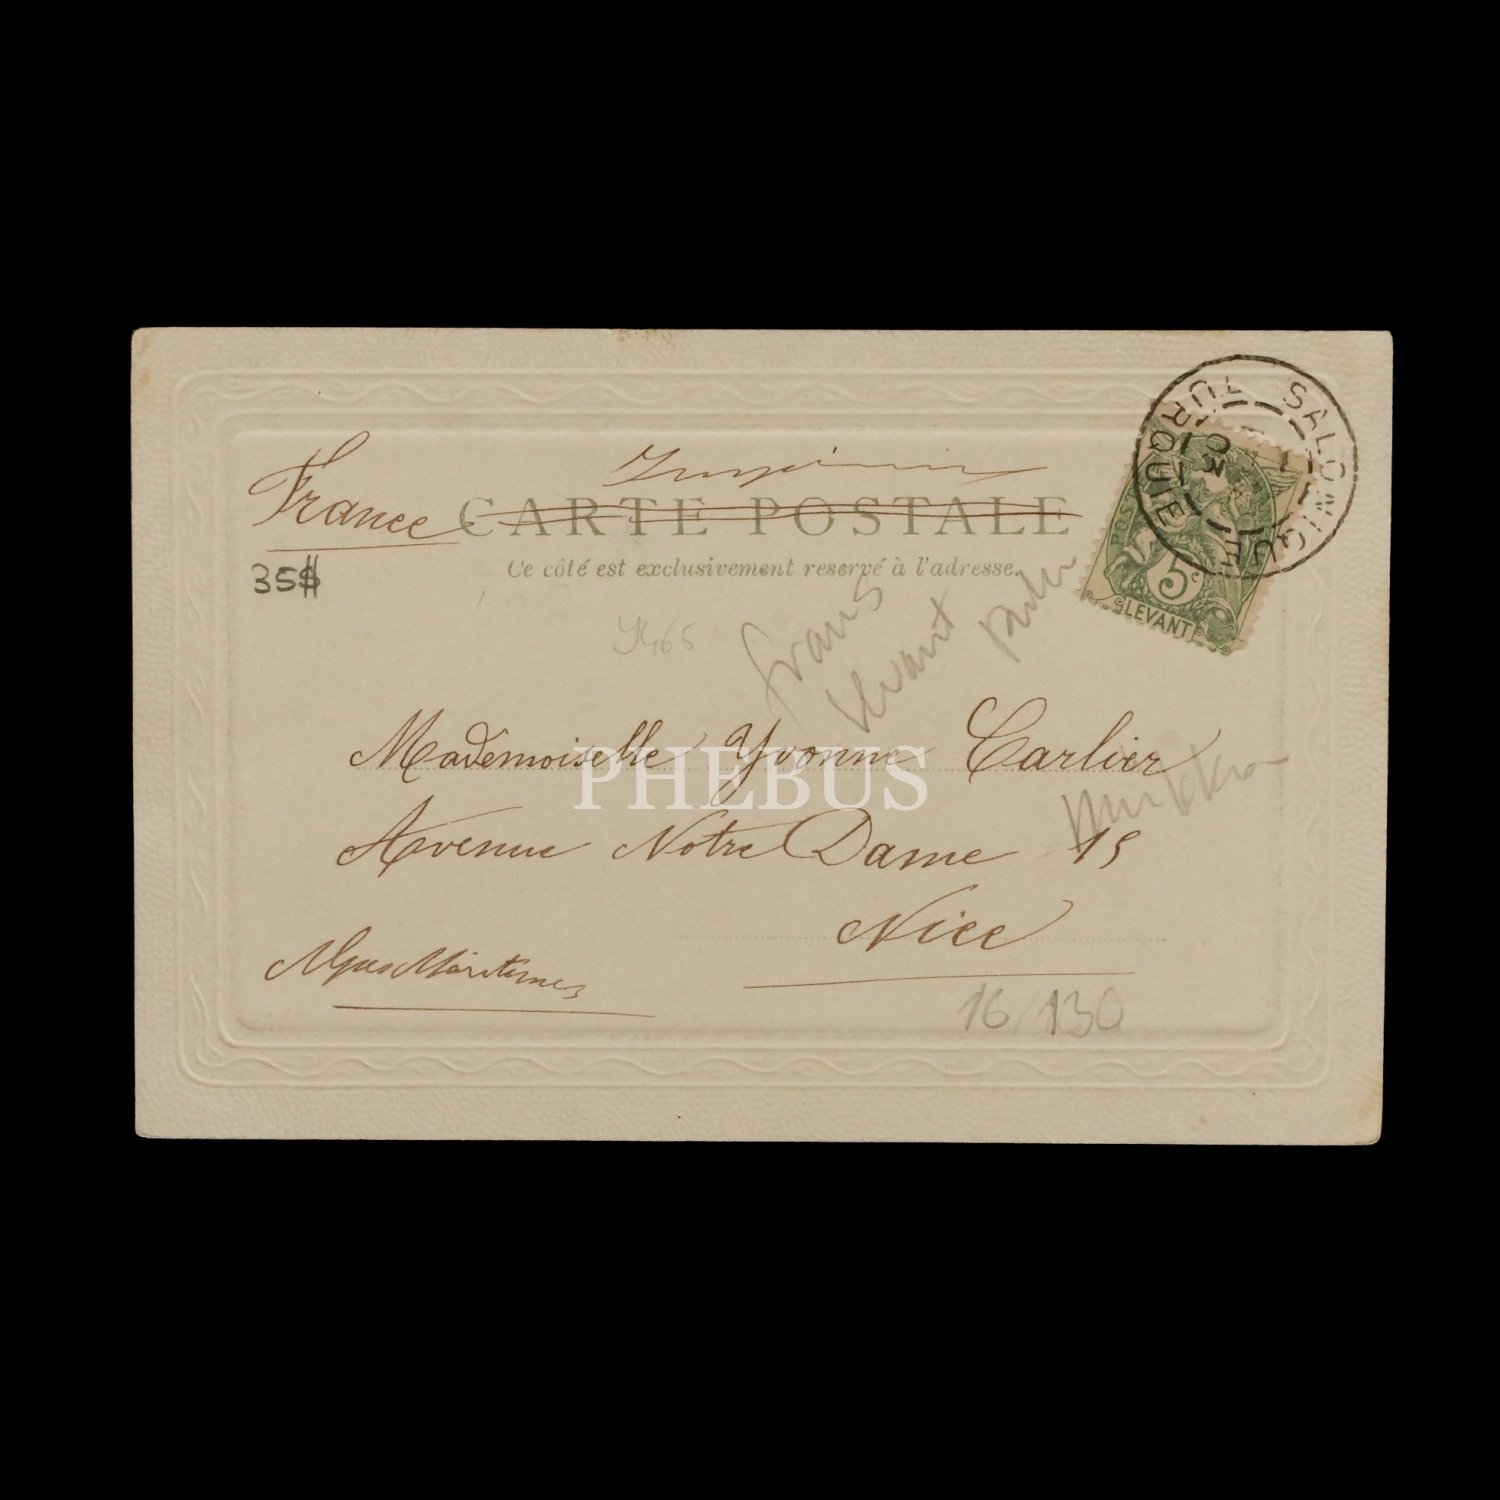 France
Imprimés
CARTE POSTALE
Ce côté est exclusivement reservé à l'adresse.
35$
SALONIQUE
TURQUIE
03
5c
LEVANT
POSTES
Mademoiselle Yvonne Carlier
PHEBUS
Avenue Notre Dame 15
Nice
Alpes Maritimes
16/130